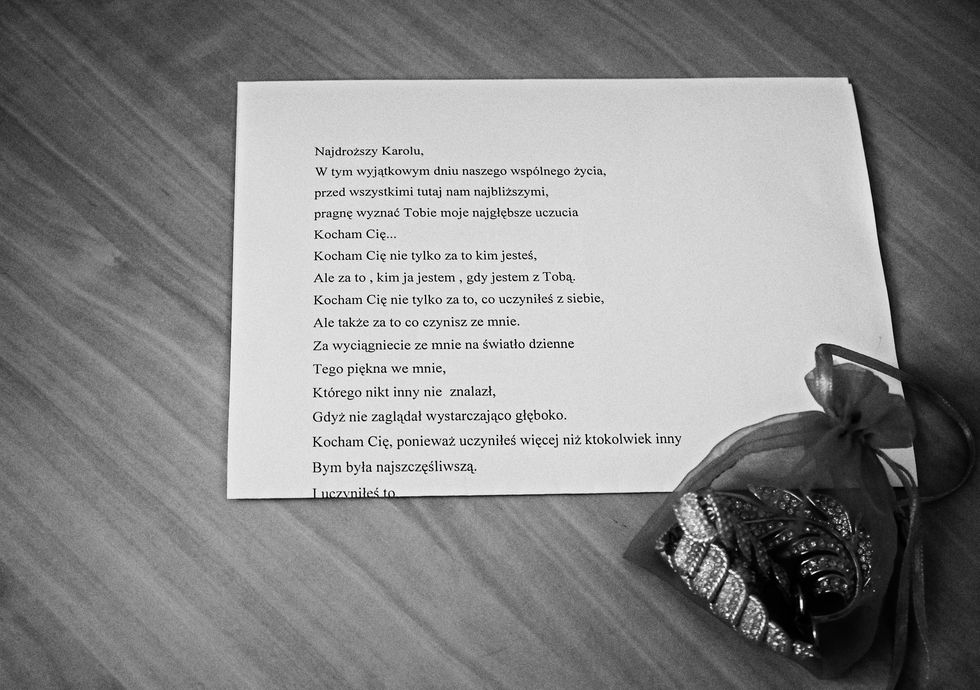 Najdroższy Karolu,
W tym wyjątkowym dniu naszego wspólnego życia,
przed wszystkimi tutaj nam najbliższymi,
pragnę wyznać Tobie moje najgłębsze uczucia
Kocham Cię...
Kocham Cię nie tylko za to kim jesteś,
Ale za to , kim ja jestem , gdy jestem z Tobą.
Kocham Cię nie tylko za to, co uczyniłeś z siebie,
Ale także za to co czynisz ze mnie.
Za wyciągniecie ze mnie na światło dzienne
Tego piękna we mnie,
Którego nikt inny nie  znalazł,
Gdyż nie zaglądał wystarczająco głęboko.
Kocham Cię, ponieważ uczyniłeś więcej niż ktokolwiek inny
Bym była najszczęśliwszą.
I uczyniłeś to